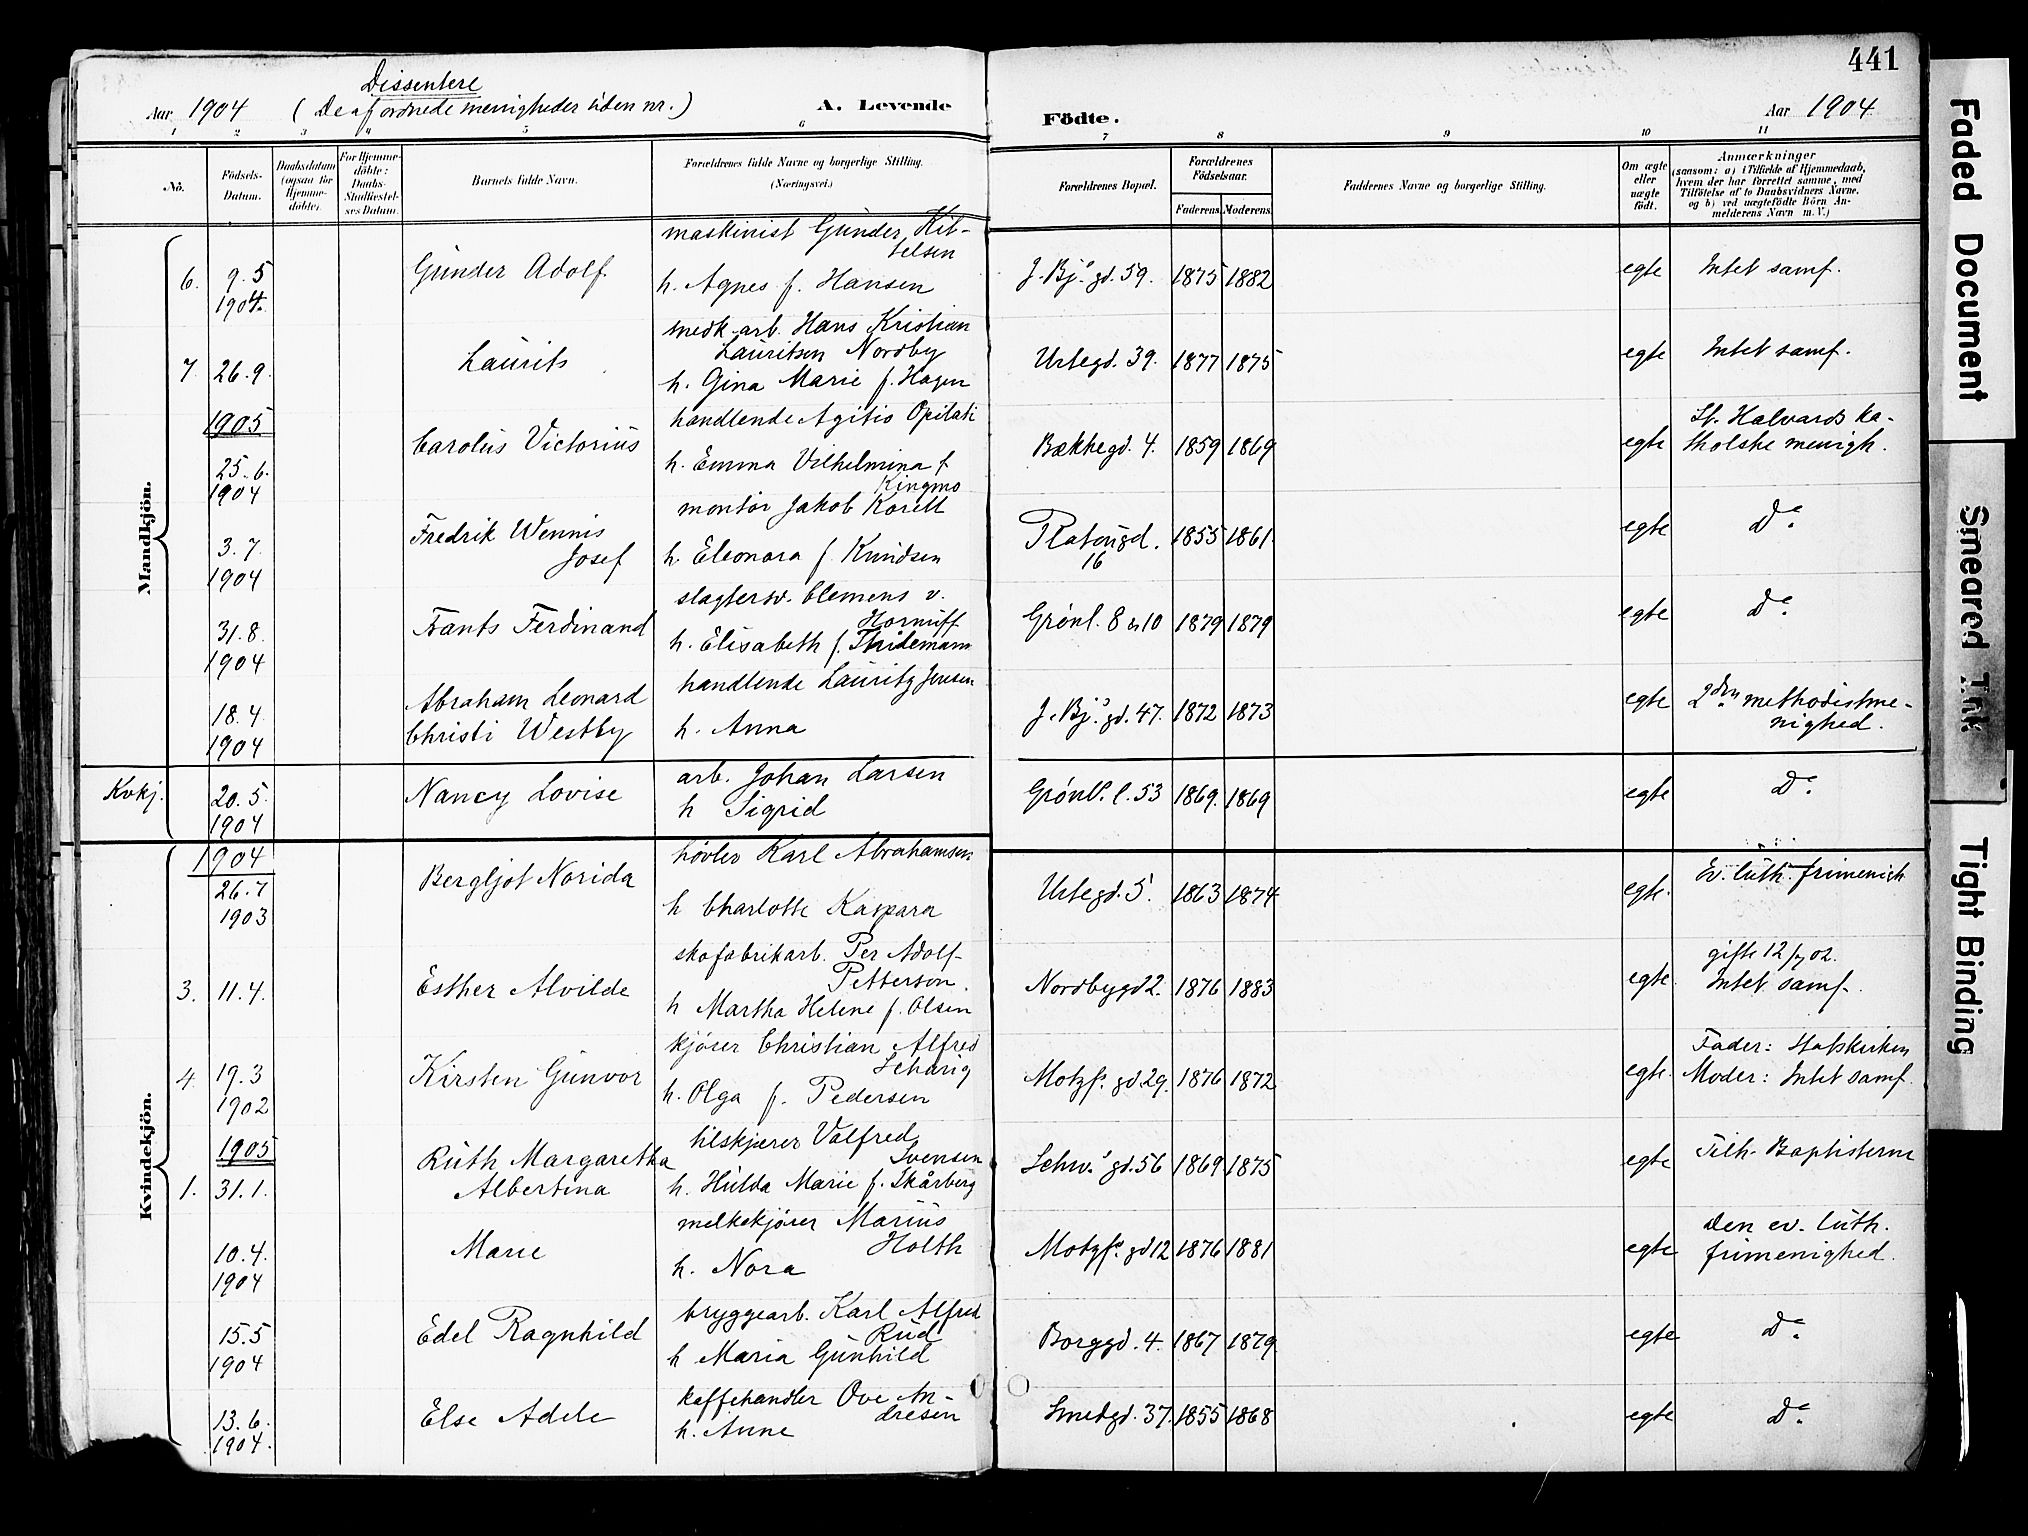 441
Dissentere
Aar 1904 (De af ordnede menigheder uden nr.) A. Levende
Födte. Aar 1904
1 2 3 4 5 6 7 8 9 10 11
No.
Födsels-Datum.
Daabsdatum (ogsaa for Hjemme-döbte).
For Hjemme-döbte: Daabs-Stadfæstel-ses Datum.
Barnets fulde Navn.
Forældrenes fulde Navne og borgerlige Stilling. (Næringsvei.)
Forældrenes Bopæl.
Forældrenes Födselsaar.
Faderens. Moderens.
Faddernes Navne og borgerlige Stilling.
Om ægte eller uægte födt.
Anmærkninger
(saasom: a) i Tilfælde af Hjemmedaab, hvem der har forrettet samme, med Tilföielse af to Daabsvidners Navne, og b) ved uægtefödte Börn An-melderens Navn m. V.)
Mandkjön.
6. 9.5 1904. Gunder Adolf maskinist Gunder Kit-telsen h. Agnes f. Hansen J. Bj.s gd. 59. 1875 1882 egte Intet samf.
7. 26.9. Laurits snedk. arb. Hans Kristian Lauritsen Nordby h. Gina Marie f. Hagen Urtegd. 39. 1877 1875 egte Intet samf.
1905
25.6. 1904 Carolus Victorius handlende Agitio Opilati h. Emma Vilhelmina f. Kingmo Bækkegd. 4. 1859 1869 egte St. Halvards ka-tholske menigh.
3.7. 1904 Fredrik Wennis Josef montör Jakob Korell h. Eleonora f. Knudsen Platougd. 16 1855 1861 egte Do.
31.8. 1904 Frants Ferdinand slagtersv. Clemens v. Hornuff h. Elisabeth f. Thidemann Grønl. 8 & 10 1879 1879 egte Do.
18.4. 1904 Abraham Leonard Christi Westby handlende Lauritz Jensen h. Anna J. Bj.s gd. 47. 1872 1873 egte 2den methodistme-nighed.
Kvkj. 20.5. 1904 Nancy Lovise arb. Johan Larsen h Sigrid Grønl. l. 53 1869. 1869 egte Do.
Kvindekjön.
1904
26.7 1903 Bergljot Norida høvler Karl Abrahamsen h Charlotte Kaspara Urtegd. 5. 1863 1874 egte. Ev. luth. frimenigh
3. 11.4. Esther Alvilde skofabrikarb. Per Adolf Petterson. h Martha Helene f. Olsen Nordbygd 2. 1876 1883 egte gifte 12/7 02. Intet samf.
4. 19.3 1902 Kirsten Gunvor kjører Christian Alfred Scharig h. Olga f. Pedersen Motzf. gd. 29. 1876 1872 egte. Fader: Statskirken Moder: Intet samf.
1905
1. 31.1. Ruth Margaretha Albertina tilskjærer Valfred Svensen h. Hulda Marie f. Skårberg Schw.s gd. 56 1869 1875 egte Tilh. Baptisterne
10.4. 1904 Marie melkekjører Marius Holth h. Nora Motzf. gd 12 1876 1881 egte Den ev. luth. frimenighed.
15.5 1904 Edel Ragnhild bryggearb. Karl Alfred Rud h Maria Gunhild Borggd. 4. 1867 1879 egte Do.
13.6. 1904. Else Adele kaffehandler Ove An-dresen h. Anne Smedgd. 37. 1855 1868 egte Do.
Faded Document
Smeared Ink
Tight Binding